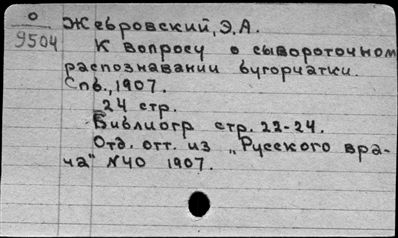 0
9504
Жебровский, Э.А.
К вопросу о сывороточном
распознавании бугорчатки.
Спб., 1907.
24 стр.
Библиогр стр. 22-24.
Отд. отт. из „Русского вра-
ча" №40 1907.